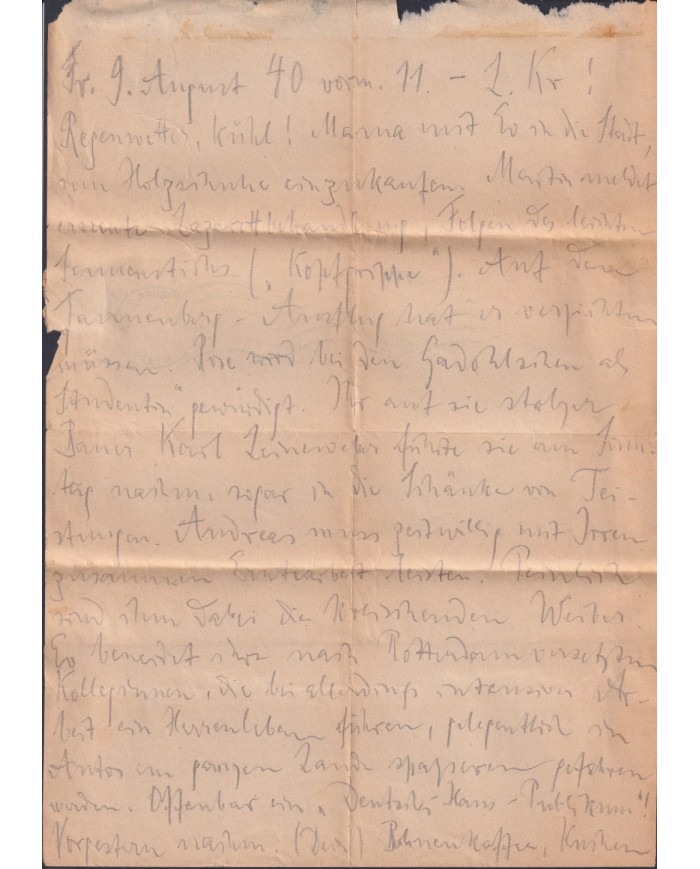 Fr. 9. August 40 vorm. 11. – 2. Kr!
Regenwetter, kühl! Mama mit Ev in die Stadt,
um Holzschuhe einzukaufen. Martin meldet
erneute Lazarettbehandlung, Folgen des leichten
Sonnenstichs („Kopfgrippe“). Auf den
Tannenberg-Ausflug hat er verzichten
müssen. wird bei den als
Studentin“ gewürdigt. Ihr auf sie stolzer
Bauer Karl Leineweber führte sie am Sonn-
tag nachm. sogar in die Schänke von Tei-
stungen. Andreas muss zeitweilig mit Irren
zusammen Erntearbeit leisten. Peinlich
sind ihm dabei die kreischenden Weiber.
Ev beneidet ihre nach Rotterdam versetzten
Kolleginnen, die bei allerdings intensiver Ar-
beit ein Herrenleben führen, gelegentlich in
Autos im ganzen Lande spazieren gefahren
werden. Offenbar ein „Deutsches Haus-Publikum“!
Vorgestern nachm. Bohnenkaffee, Kuchen